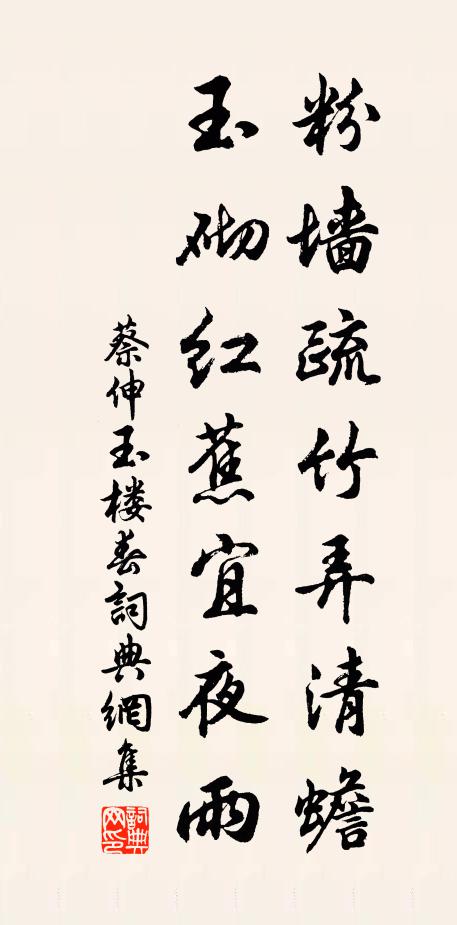 粉墙疏竹弄清蟾
玉砌红蕉宜夜雨
蔡伸玉楼春詞典網集
詞典网印